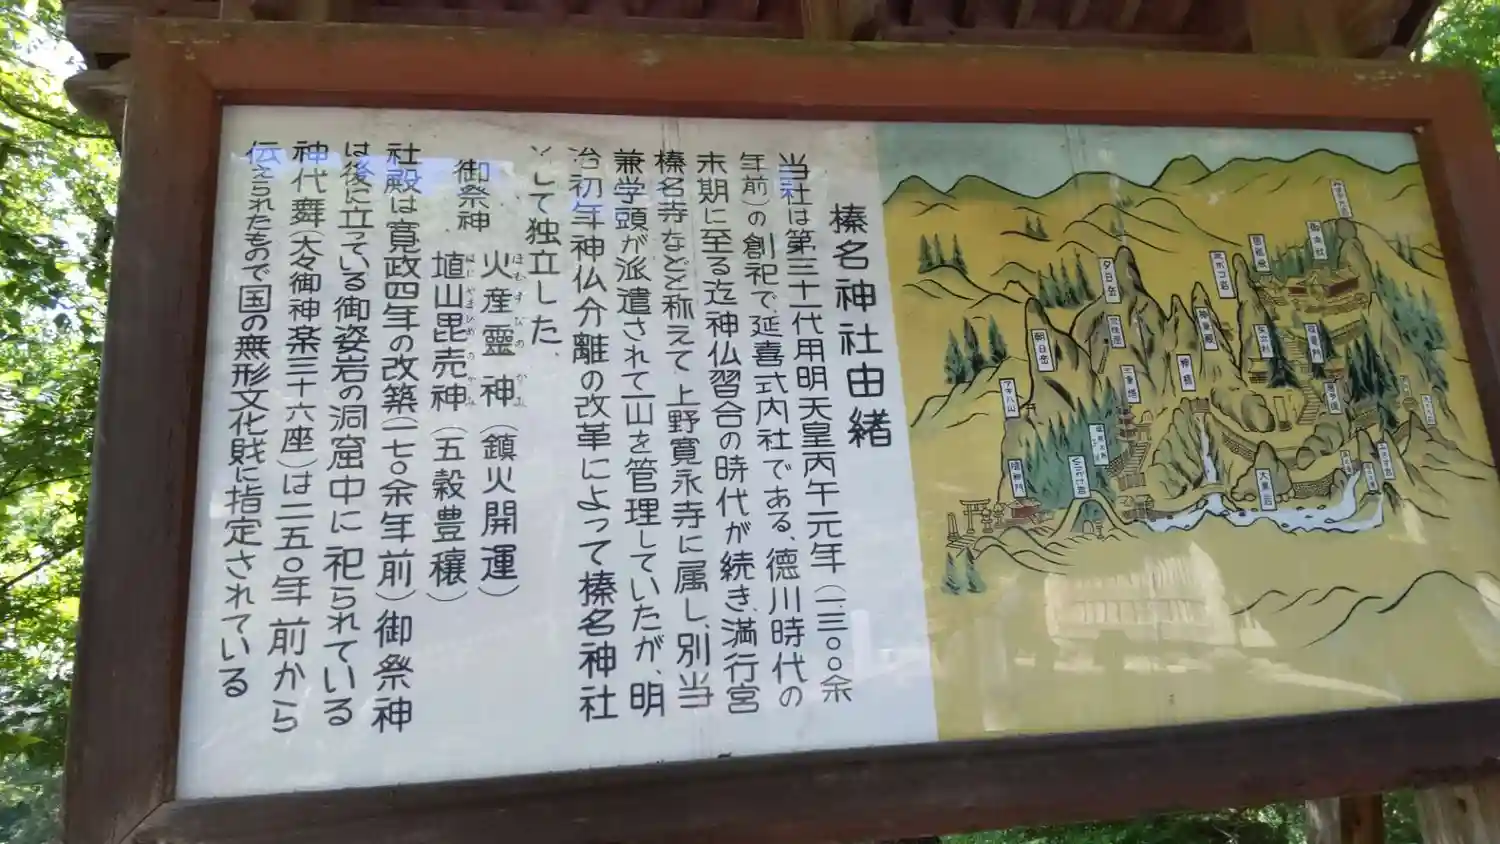 榛名神社由緒
当社は第三十一代用明天皇丙午元年(一三〇〇余
年前)の創祀で、延喜式内社である、徳川時代の
末期に至る迄神仏習合の時代が続き、満行宮
榛名寺などと称えて上野寛永寺に属し、別当
兼学頭が派遣されて一山を管理していたが、明
治初年神仏分離の改革によって榛名神社
として独立した、
御祭神 火産霊神(鎮火開運)
ほむすびのかみ
埴山毘売神(五穀豊穣)
はにやまひめのかみ
社殿は寛政四年の改築(一七〇余年前)御祭神
は後に立っている御姿岩の洞窟中に祀られている
神代舞(大々御神楽三十六座)は二五〇年前から
伝えられたもので国の無形文化財に指定されている
夕日岳
朝日岳
三重塔
神橋
大黒岩